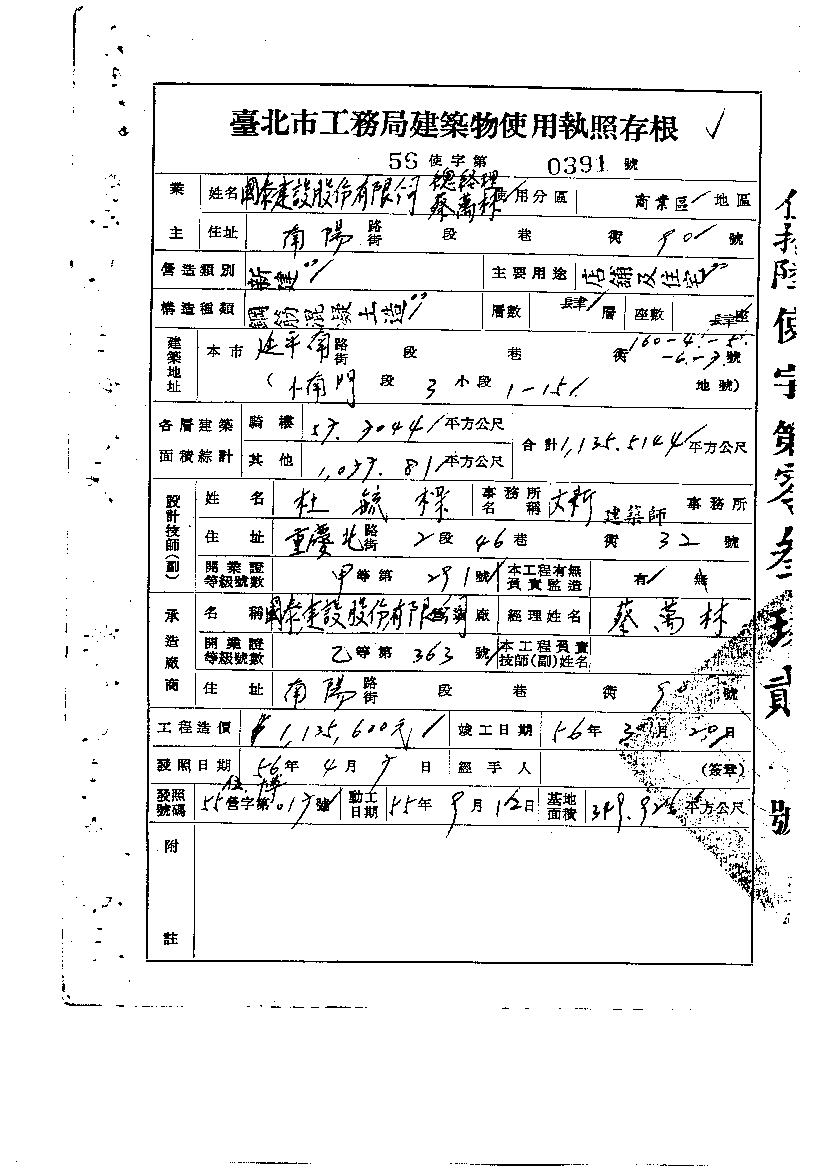 臺北市工務局建築物使用執照存根
56 使字第 0391 號
業主 姓名 國泰建設股份有限公司 總經理 蔡萬林 使用分區 商業區 地區
住址 南陽 路街 段 巷 衖 90 號
營造類別 新建 主要用途 店舖及住宅
構造種類 鋼筋混凝土造 層數 肆 層 座數 肆 座
建築地址 本市 延平南 路街 段 巷 衖 160-4.-5.-6.-7. 號
(小南門 段 3 小段 1-15 地號)
各層建築面積綜計 騎樓 57.7044 平方公尺 合計 1,135.5144 平方公尺
其他 1,077.81 平方公尺
設計技師(副) 姓名 杜毓 事務所名稱 文新建築師 事務所
住址 重慶北 路街 2 段 46 巷 衖 32 號
開業證等級號數 甲 等第 291 號 本工程有無負責監造 有 無
承造廠商 名稱 國泰建設股份有限公司 廠 經理姓名 蔡萬林
開業證等級號數 乙 等第 363 號 本工程負責技師(副)姓名
住址 南陽 路街 段 巷 衖 90 號
工程造價 $1,135,600元 竣工日期 56 年 3 月 20 日
發照日期 56 年 4 月 7 日 經手人 (簽章)
發照號碼 55 營字第 017 號 動工日期 55 年 9 月 12 日 基地面積 349.92 平方公尺
附註
伍拾陸使字第零叁玖貳 號